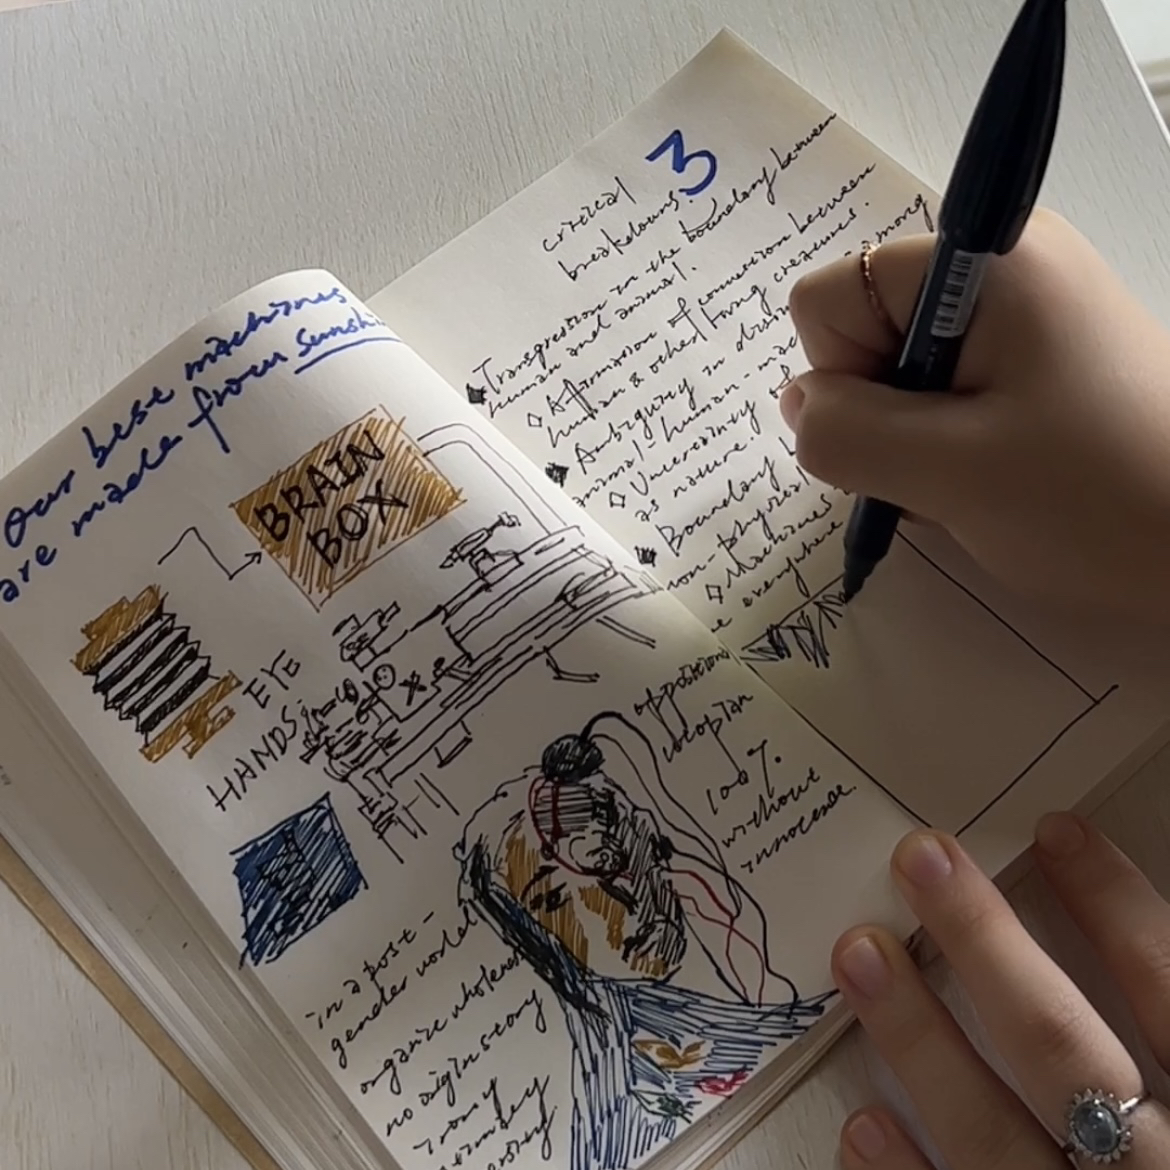 our best machines
are made from sunshi
BRAIN
BOX
EYE
HANDS
in a post-
gender world
organic wholeness
no origin story
irony
oppositional
utopian
100%
without
innocence.
3
critical
breakdowns.
Transgression in the boundary between
human and animal.
Affirmation of connection between
human & other living creatures.
Ambiguity in among
animal-human-mac
Uncertainty of
as nature.
Boundary
non-physical
Machines
everywhere